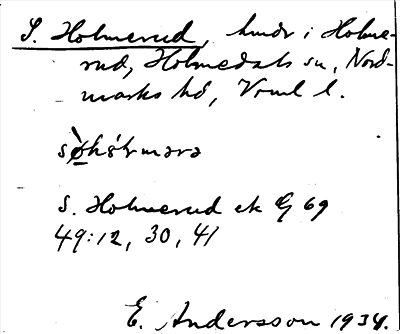 S. Holmerud, hmdr i Holme-
rud, Holmedals sn, Nord-
marks hd, Vrml l.
S. Holmerud ek G 69
49:12, 30, 41
E. Andersson 1934.